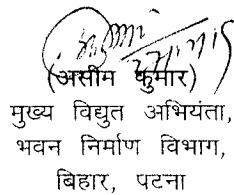 (असीम कुमार)
मुख्य विद्युत अभियंता,
भवन निर्माण विभाग,
बिहार, पटना